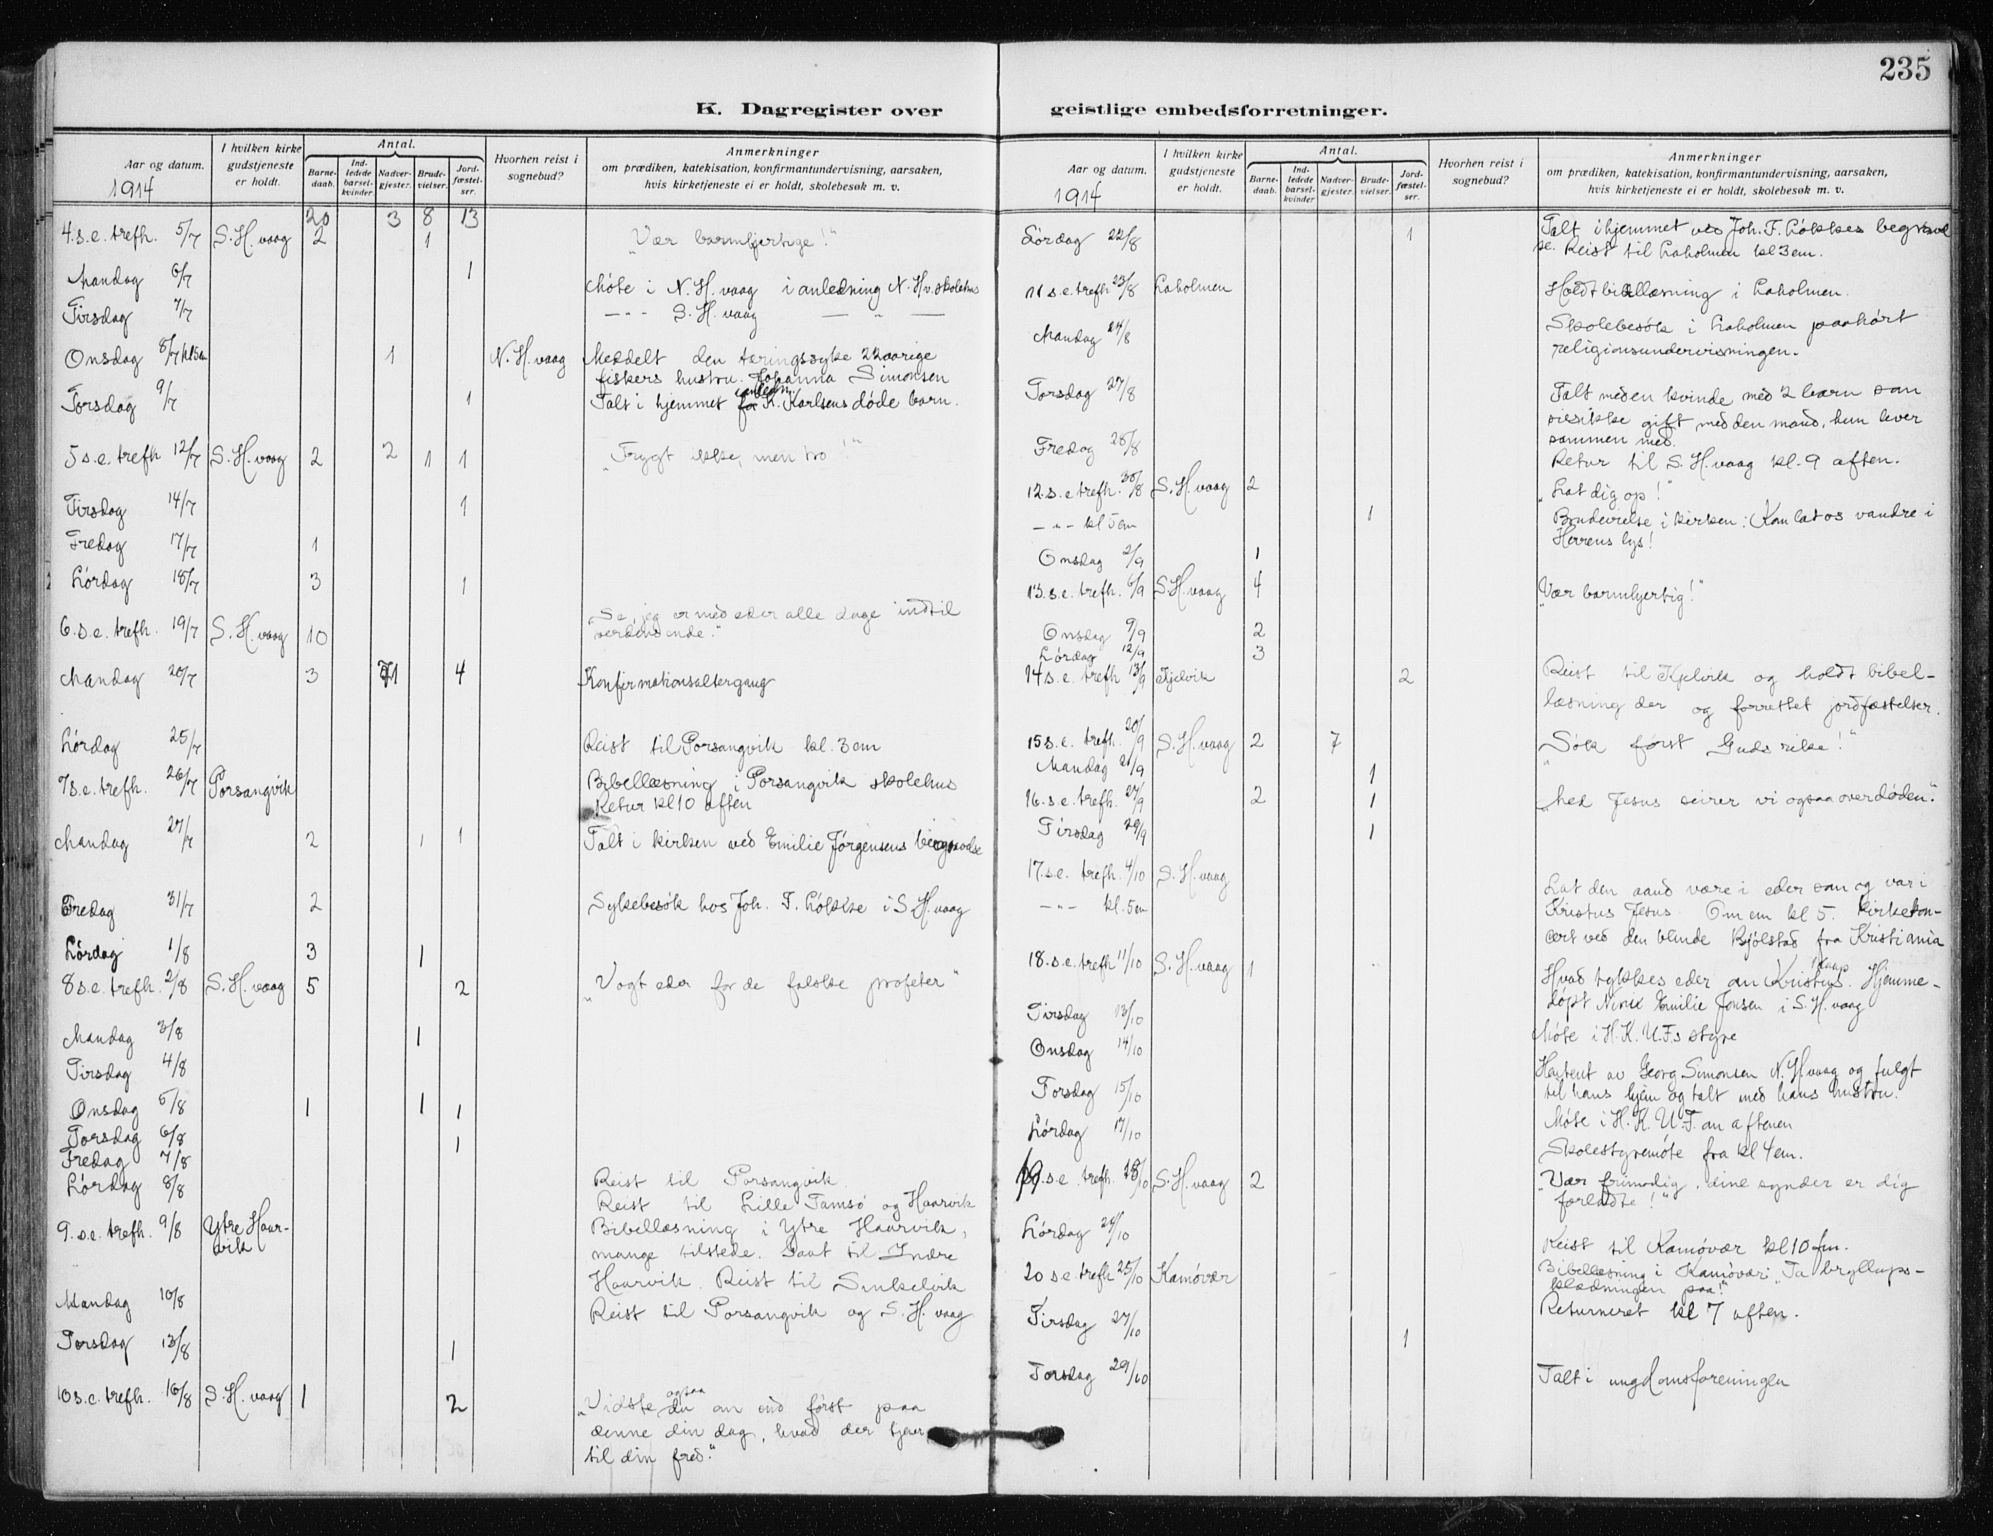 235
K. Dagregister over geistlige embedsforretninger.
Aar og datum. I hvilken kirke gudstjeneste er holdt. Antal. Barnedaab. Indledede barselkvinder Nadvergjester. Brudevielser. Jordfæstelser. Hvorhen reist i sognebud? Anmerkninger om prædiken, katekisation, konfirmantundervisning, aarsaken, hvis kirketjeneste ei er holdt, skolebesøk m. v.
1914
20 3 8 13
4. s. e. trefh. 5/7 S. H. vaag 2 1 „Vær barmhjertige!“
Mandag 6/7 1 Møte i N. H. vaag i anledning N. H. v. skolehus
Tirsdag 7/7 --- S. H. vaag — „ —
Onsdag 8/7 1 N. H. vaag Meddelt den tæringssyke 22 aarige
fiskers hustru Johanna Simonsen
Torsdag 9/7 1 Talt i hjemmet for K. Karlsens døde barn.
5 s. e. trefh 12/7 S. H. vaag 2 2 1 1 „Frygt ikke, men tro!“
Tirsdag 14/7 1
Fredag 17/7 1
Lørdag 18/7 3 1
6. s. e. trefh. 19/7 S. H. vaag 10 „Se, jeg er med eder alle dage indtil
verdens ende.“
Mandag 20/7 3 71 4 Konfirmationsaltergang
Lørdag 25/7 Reist til Porsangvik kl. 3 em
7 s. e. trefh. 26/7 Porsangvik Bibellæsning i Porsangvik skolehus
Retur kl 10 aften
Mandag 27/7 2 1 1 Talt i kirken ved Emilie Jørgensens begravelse
Fredag 31/7 2 Sykebesøk hos Joh. F. Løkke i S. H. vaag
Lørdag 1/8 3 1
8 s. e. trefh. 2/8 S. H. vaag 5 2 „Vogt eder for de falske profeter“
Mandag 3/8 1
Tirsdag 4/8
Onsdag 5/8 1 1 1
Torsdag 6/8 1
Fredag 7/8 Reist til Porsangvik.
Lørdag 8/8 Reist til Lille Tamsø og Haarvik
9. s. e. trefh. 9/8 Ytre Haarvik Bibellæsning i Ytre Haarvik,
mange tilstede. Gaat til Indre
Haarvik. Reist til Smkelvik
Mandag 10/8 Reist til Porsangvik og S. H. vaag
Torsdag 13/8 1
10 s. e. trefh. 16/8 S. H. vaag 1 2 „Vidste ogsaa du om end først paa
denne din dag, hvad der tjener
til din fred.“
Aar og datum. I hvilken kirke gudstjeneste er holdt. Antal. Barnedaab. Indledede barselkvinder Nadvergjester. Brudevielser. Jordfæstelser. Hvorhen reist i sognebud? Anmerkninger om prædiken, katekisation, konfirmantundervisning, aarsaken, hvis kirketjeneste ei er holdt, skolebesøk m. v.
1914
Lørdag 22/8 1 Talt i hjemmet ved Joh. F. Løkkes begravel
se. Reist til Laholmen kl 3 em.
11 s. e. trefh 23/8 Laholmen Holdt bibellæsning i Laholmen.
Mandag 24/8 Skolebesøk i Laholmen paahørt
religionsundervisningen.
Torsdag 27/8 Talt med en kvinde med 2 barn som
ikke gift med den mand, hun lever
sammen med.
Fredag 28/8 Retur til S. H. vaag kl. 9 aften.
12. s. e. trefh. 30/8 S. H. vaag 2 „Lat dig op!“
— „ — kl 5 em 1 Brudevielse i kirken: Kom lat os vandre i
Herrens lys!
Onsdag 2/9 1
13. s. e. trefh. 6/9 S. H. vaag 4 „Vær barmhjertig!“
Onsdag 9/9 2
Lørdag 12/9 3
14 s. e. trefh 13/9 Kjelvik 2 Reist til Kjelvik og holdt bibel-
læsning der og forrettet jordfæstelser.
15 s. e. trefh. 20/9 S. H. vaag 2 7 „Søk først Guds rike!“
Mandag 21/9 1
16. s. e. trefh. 27/9 2 1 „Med Jesus seirer vi ogsaa over døden.“
Tirsdag 29/9 1
17. s. e. trefh. 4/10 S. H. vaag Lat den aand være i eder som og var i
— „ — kl. 5 em Kristus Jesus. Om em kl 5. kirkekon-
cert ved den blinde Bjølstad fra Kristiania
18. s. e. trefh 11/10 S. H. vaag 1 Hvad tykkes eder om Kristus. Hjemme-
døpt Emilie Jensen i S. H. vaag
Tirsdag 13/10 Møte i H. K. U. F.s styre
Onsdag 14/10 Hentent av Georg Simonsen N. H. vaag og fulgt
til hans hjem og talt med hans hustru.
Torsdag 15/10 Møte i H. K. U. F. om aftenen
Lørdag 17/10 Skolestyremøte fra kl 4 em.
19. s. e. trefh. 18/10 S. H. vaag 2 „Vær frimodig, dine synder er dig
forladte!“
Lørdag 24/10 Reist til Kamøvær kl 10 fm.
20 s. e. trefh 25/10 Kamøvær Bibellæsning i Kamøvær: „Ta bryllups-
klædningen paa!“
Returneret kl 7 aften.
Tirsdag 27/10 1
Torsdag 29/10 Talt i ungdomsforeningen